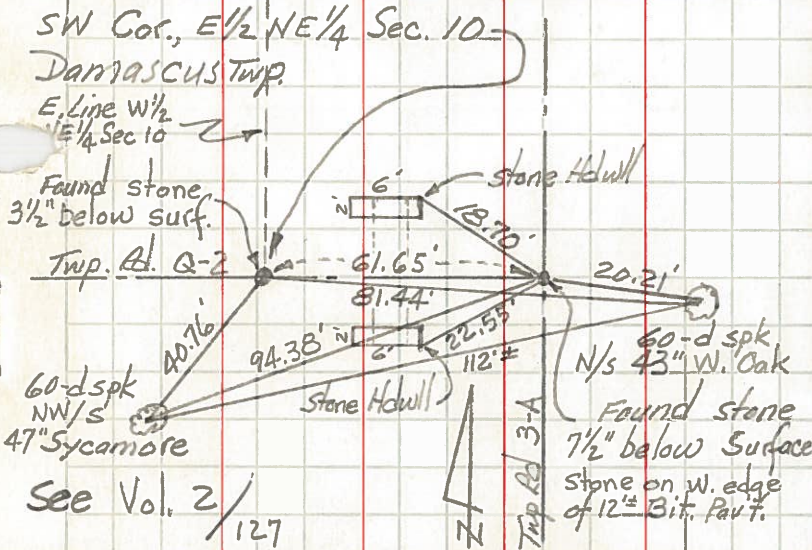 SW Cor., E1/2 NE1/4 Sec. 10
Damascus Twp.
E. Line W1/2
NE1/4 Sec 10
Found stone
3 1/2" below surf.
6'
2'
stone Hdwll
18.70'
Twp. Rd. Q-2
61.65'
81.44'
20.21'
40.76'
94.38'
2'
6'
22.55'
112'±
60-d spk
N/s 43" W. Oak
60-d spk
NW/s
47" Sycamore
Stone Hdwll
Found stone
7 1/2" below Surface
Stone on W. edge
of 12'± Bit. Pav't.
Twp Rd 3-A
N
See Vol. 2/127